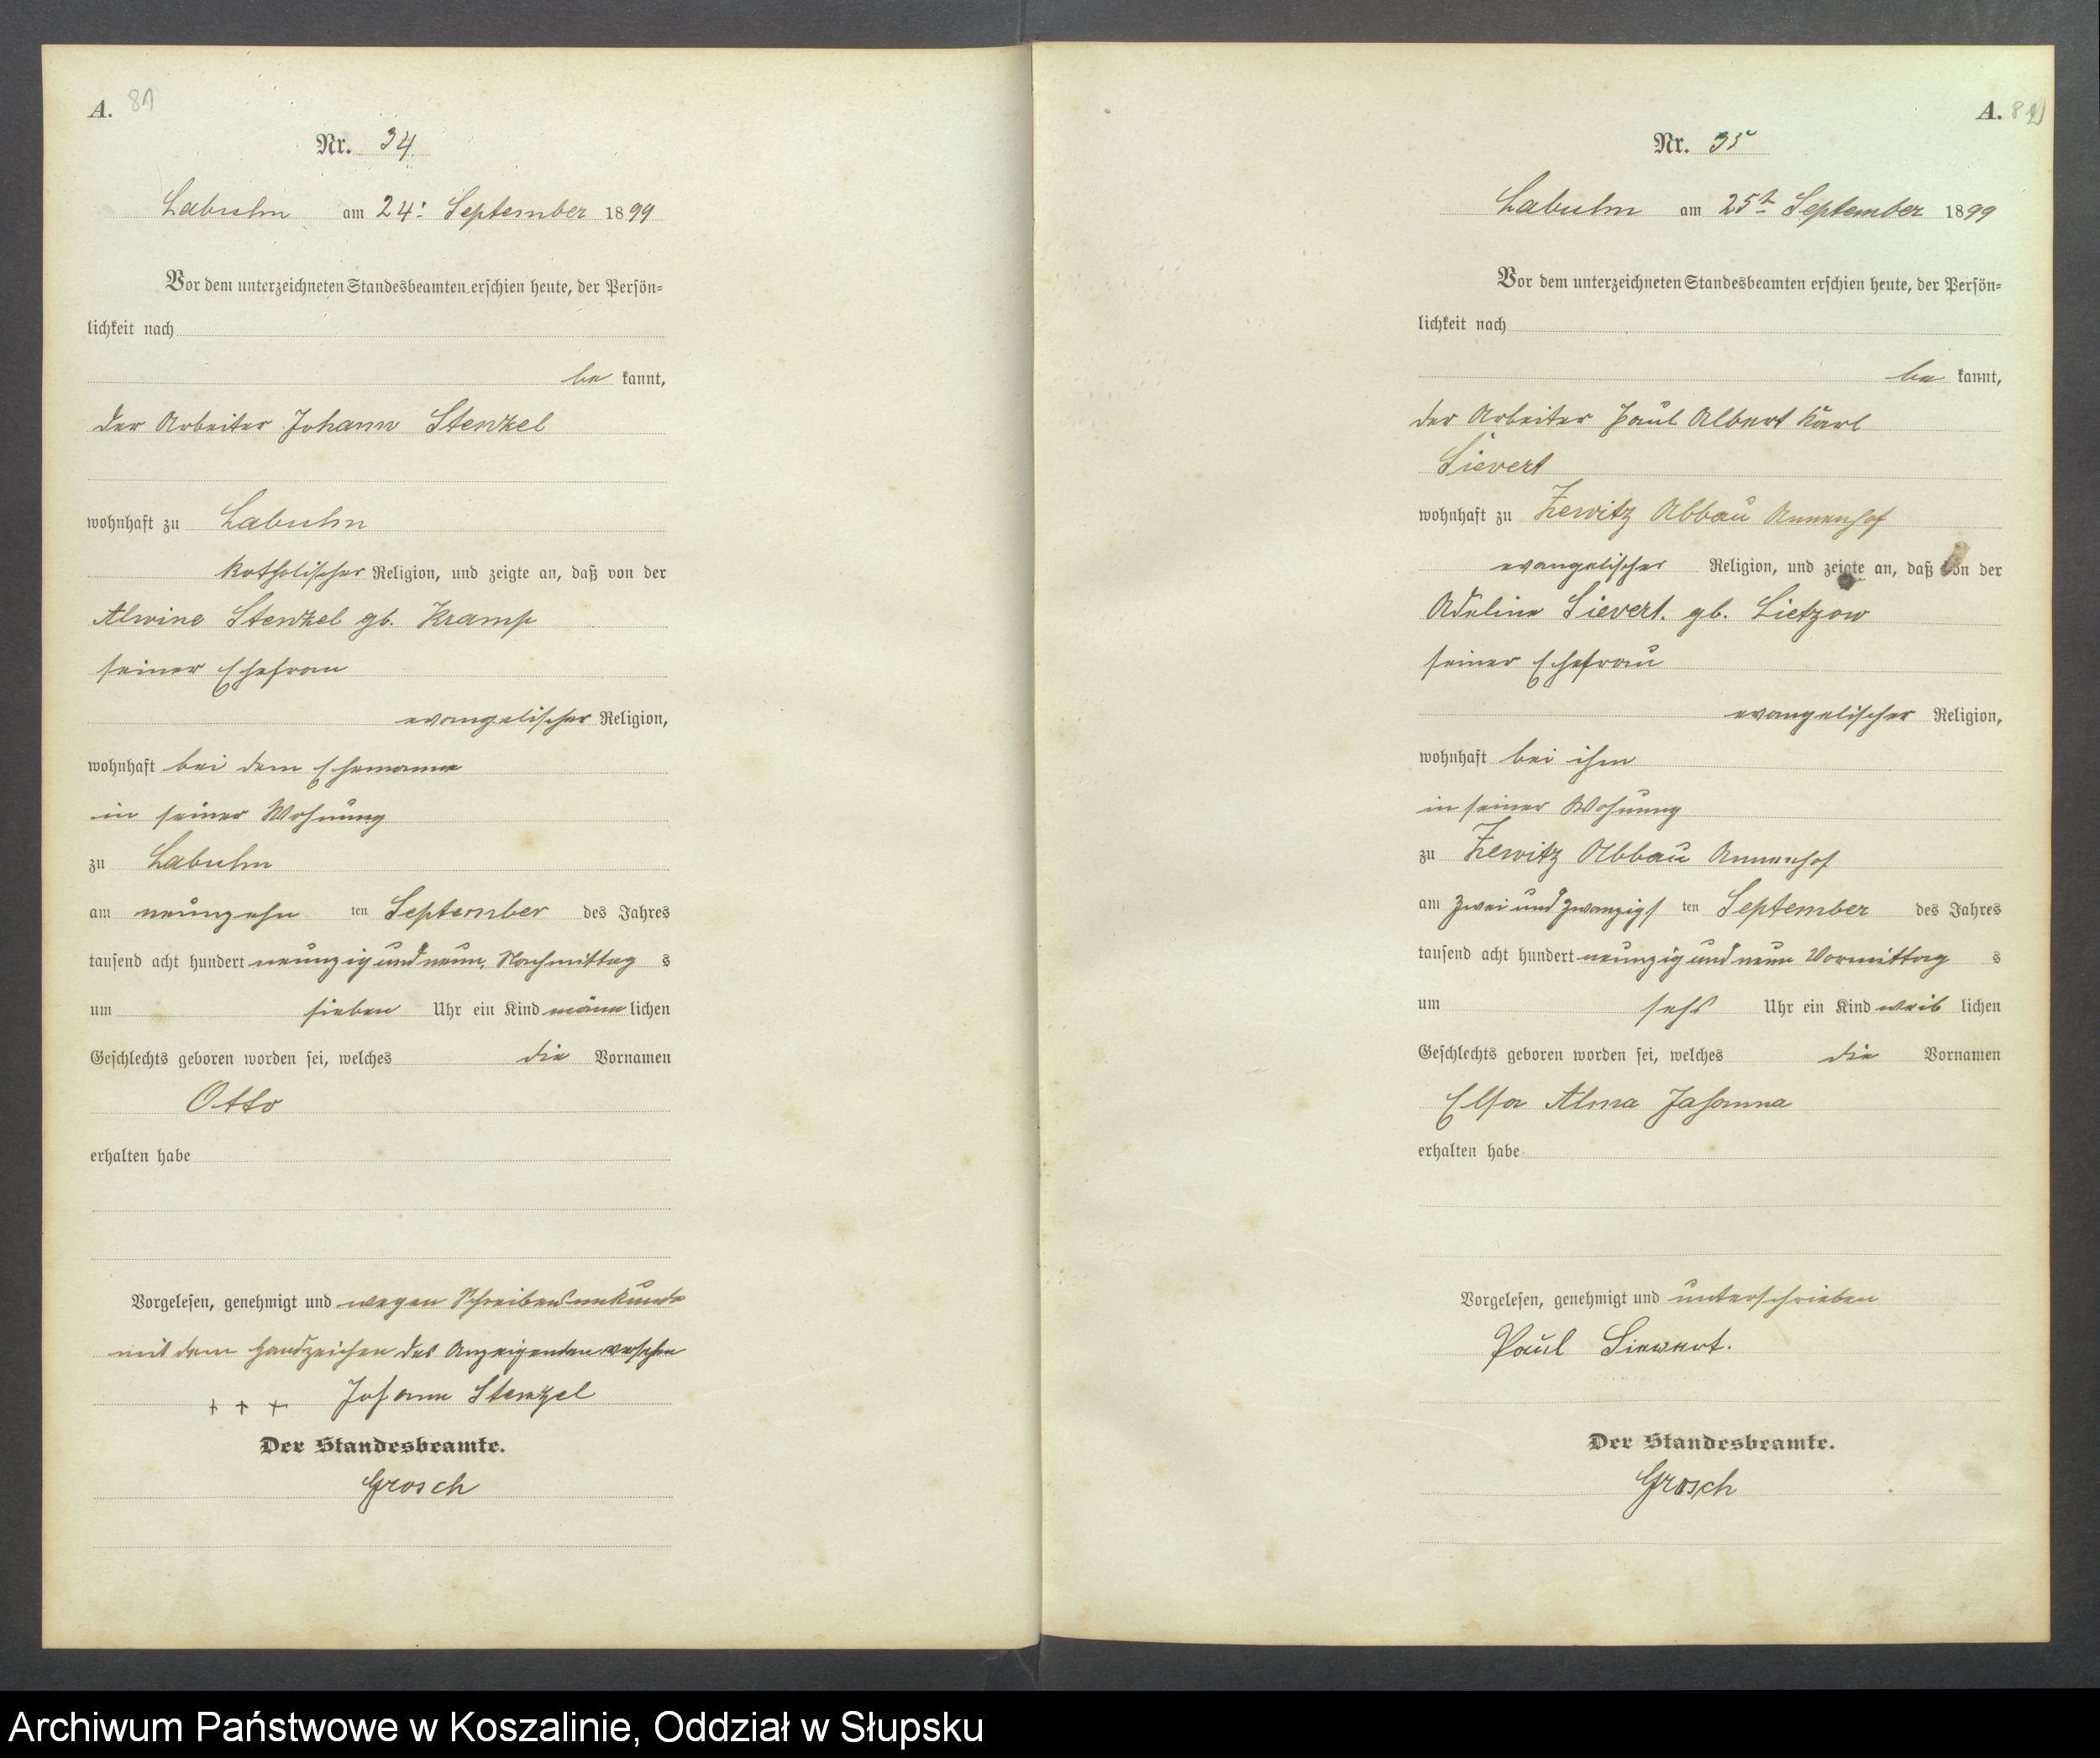 A. 81
Nr. 34.
Labuhn am 24. September 1899
Vor dem unterzeichneten Standesbeamten erschien heute, der Persön-
lichkeit nach
be kannt,
der Arbeiter Johann Stenzel
wohnhaft zu Labuhn
katholischer Religion, und zeigte an, daß von der
Alwine Stenzel gb. Kramp
seiner Ehefrau
evangelischer Religion,
wohnhaft bei dem Ehemanne
in seiner Wohnung
zu Labuhn
am neunzehn ten September des Jahres
tausend acht hundert neunzig und neun, Nachmittag s
um sieben Uhr ein Kind männ lichen
Geschlechts geboren worden sei, welches die Vornamen
Otto
erhalten habe
Vorgelesen, genehmigt und wegen Schreibensunkunde
mit dem Handzeichen des Anzeigenden versehen
+ + + Johann Stenzel
Der Standesbeamte.
Grosch
A. 82
Nr. 35
Labuhn am 25t September 1899
Vor dem unterzeichneten Standesbeamten erschien heute, der Persön-
lichkeit nach
be kannt,
der Arbeiter Paul Albert Karl
Sievert
wohnhaft zu Zewitz Abbau Annenhof
evangelischer Religion, und zeigte an, daß von der
Adeline Sievert. gb. Lietzow
seiner Ehefrau
evangelischer Religion,
wohnhaft bei ihm
in seiner Wohnung
zu Zewitz Abbau Annenhof
am zwei und zwanzigs ten September des Jahres
tausend acht hundert neunzig und neun Vormittag s
um sechs Uhr ein Kind weib lichen
Geschlechts geboren worden sei, welches die Vornamen
Elsa Alma Johanna
erhalten habe
Vorgelesen, genehmigt und unterschrieben
Paul Siewert.
Der Standesbeamte.
Grosch
Archiwum Państwowe w Koszalinie, Oddział w Słupsku